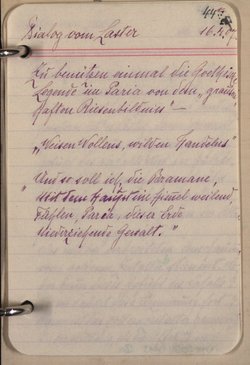 44
Dialog vom Laster
16.4.
Zu benützen einmal die Goethesche
Legende im Paria von dem „grauen-
haften Riesenbildnis“ —
„Weisen Wollens, wilden Handelns“
„Und so soll ich, die Bramane,
Mit dem Haupt im Himmel weilend
Fühlen, Paria, dieser Erde
Niederziehende Gewalt.“